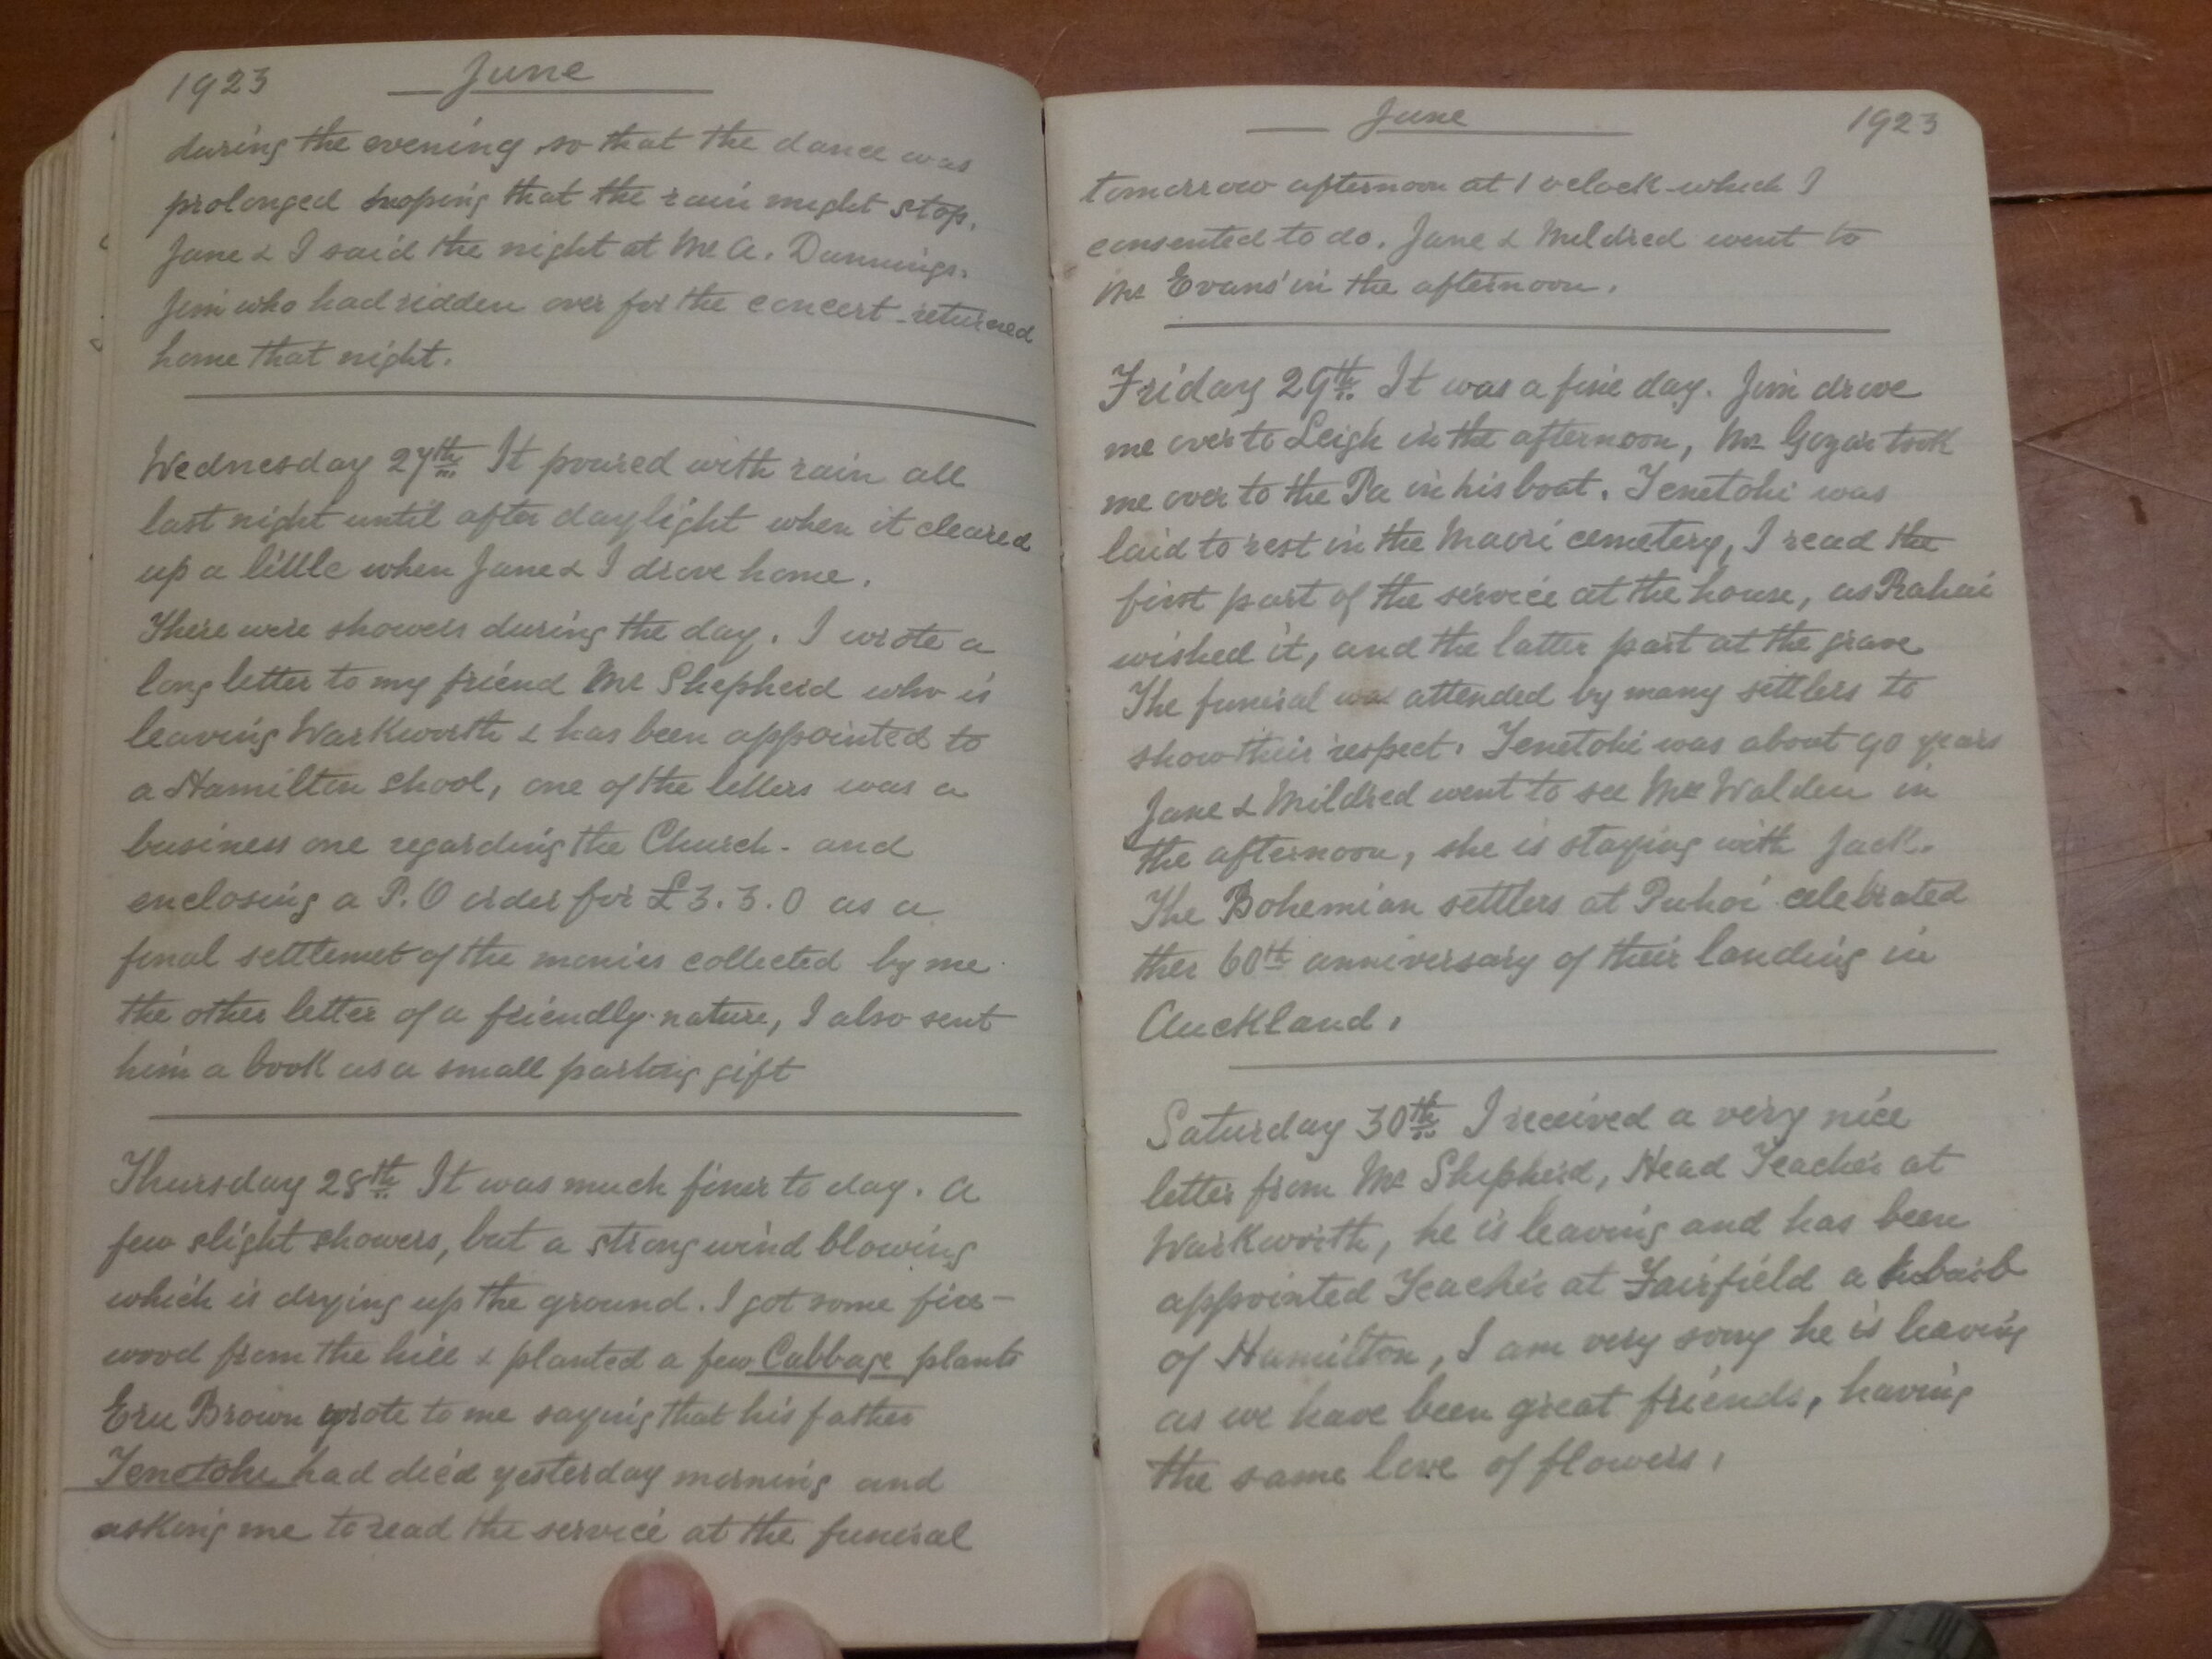 1923 June
during the evening, so that the dance was
prolonged hoping that the rain might stop.
Jane & I said the night at Mr A. Dunnings.
Jim who had ridden over for the concert returned
home that night.
Wednesday 27th It poured with rain all
last night until after daylight when it cleared
up a little when Jane & I drove home.
There were showers during the day. I wrote a
long letter to my friend Mr Shepherd who is
leaving Warkworth & has been appointed to
a Hamilton school, one of the letters was a
business one regarding the Church - and
enclosing a P.O order for £3.3.0 as a
final settlemet of the monies collected by me
the other letter of a friendly nature, I also sent
him a book as a small parting gift
Thursday 28th It was much finer to day. A
few slight showers, but a strong wind blowing
which is drying up the ground. I got some fire-
wood from the hill & planted a few Cabbage plants
Eru Brown wrote to me saying that his father
Tenetohi had died yesterday morning and
asking me to read the service at the funeral
June 1923
tomorrow afternoon at 1 oclock which I
consented to do. Jane & Mildred went to
Mr Evans' in the afternoon.
Friday 29th It was a fine day. Jim drove
me over to Leigh in the afternoon, Mr Gozar took
me over to the Pa in his boat. Tenetohi was
laid to rest in the Maori cemetery, I read the
first part of the service at the house, as Rahui
wished it, and the latter part at the grave
The funeral was attended by many settlers to
show their respect. Tenetohi was about 90 years
Jane & Mildred went to see Mrs Walden in
the afternoon, she is staying with Jack.
The Bohemian settlers at Puhoi celebrated
ther 60th anniversary of their landing in
Auckland.
Saturday 30th I received a very nice
letter from Mr Shepherd, Head Teacher at
Warkworth, he is leaving and has been
appointed Teacher at Fairfield a subarb
of Hamilton, I am very sorry he is leaving
as we have been great friends, having
the same love of flowers.